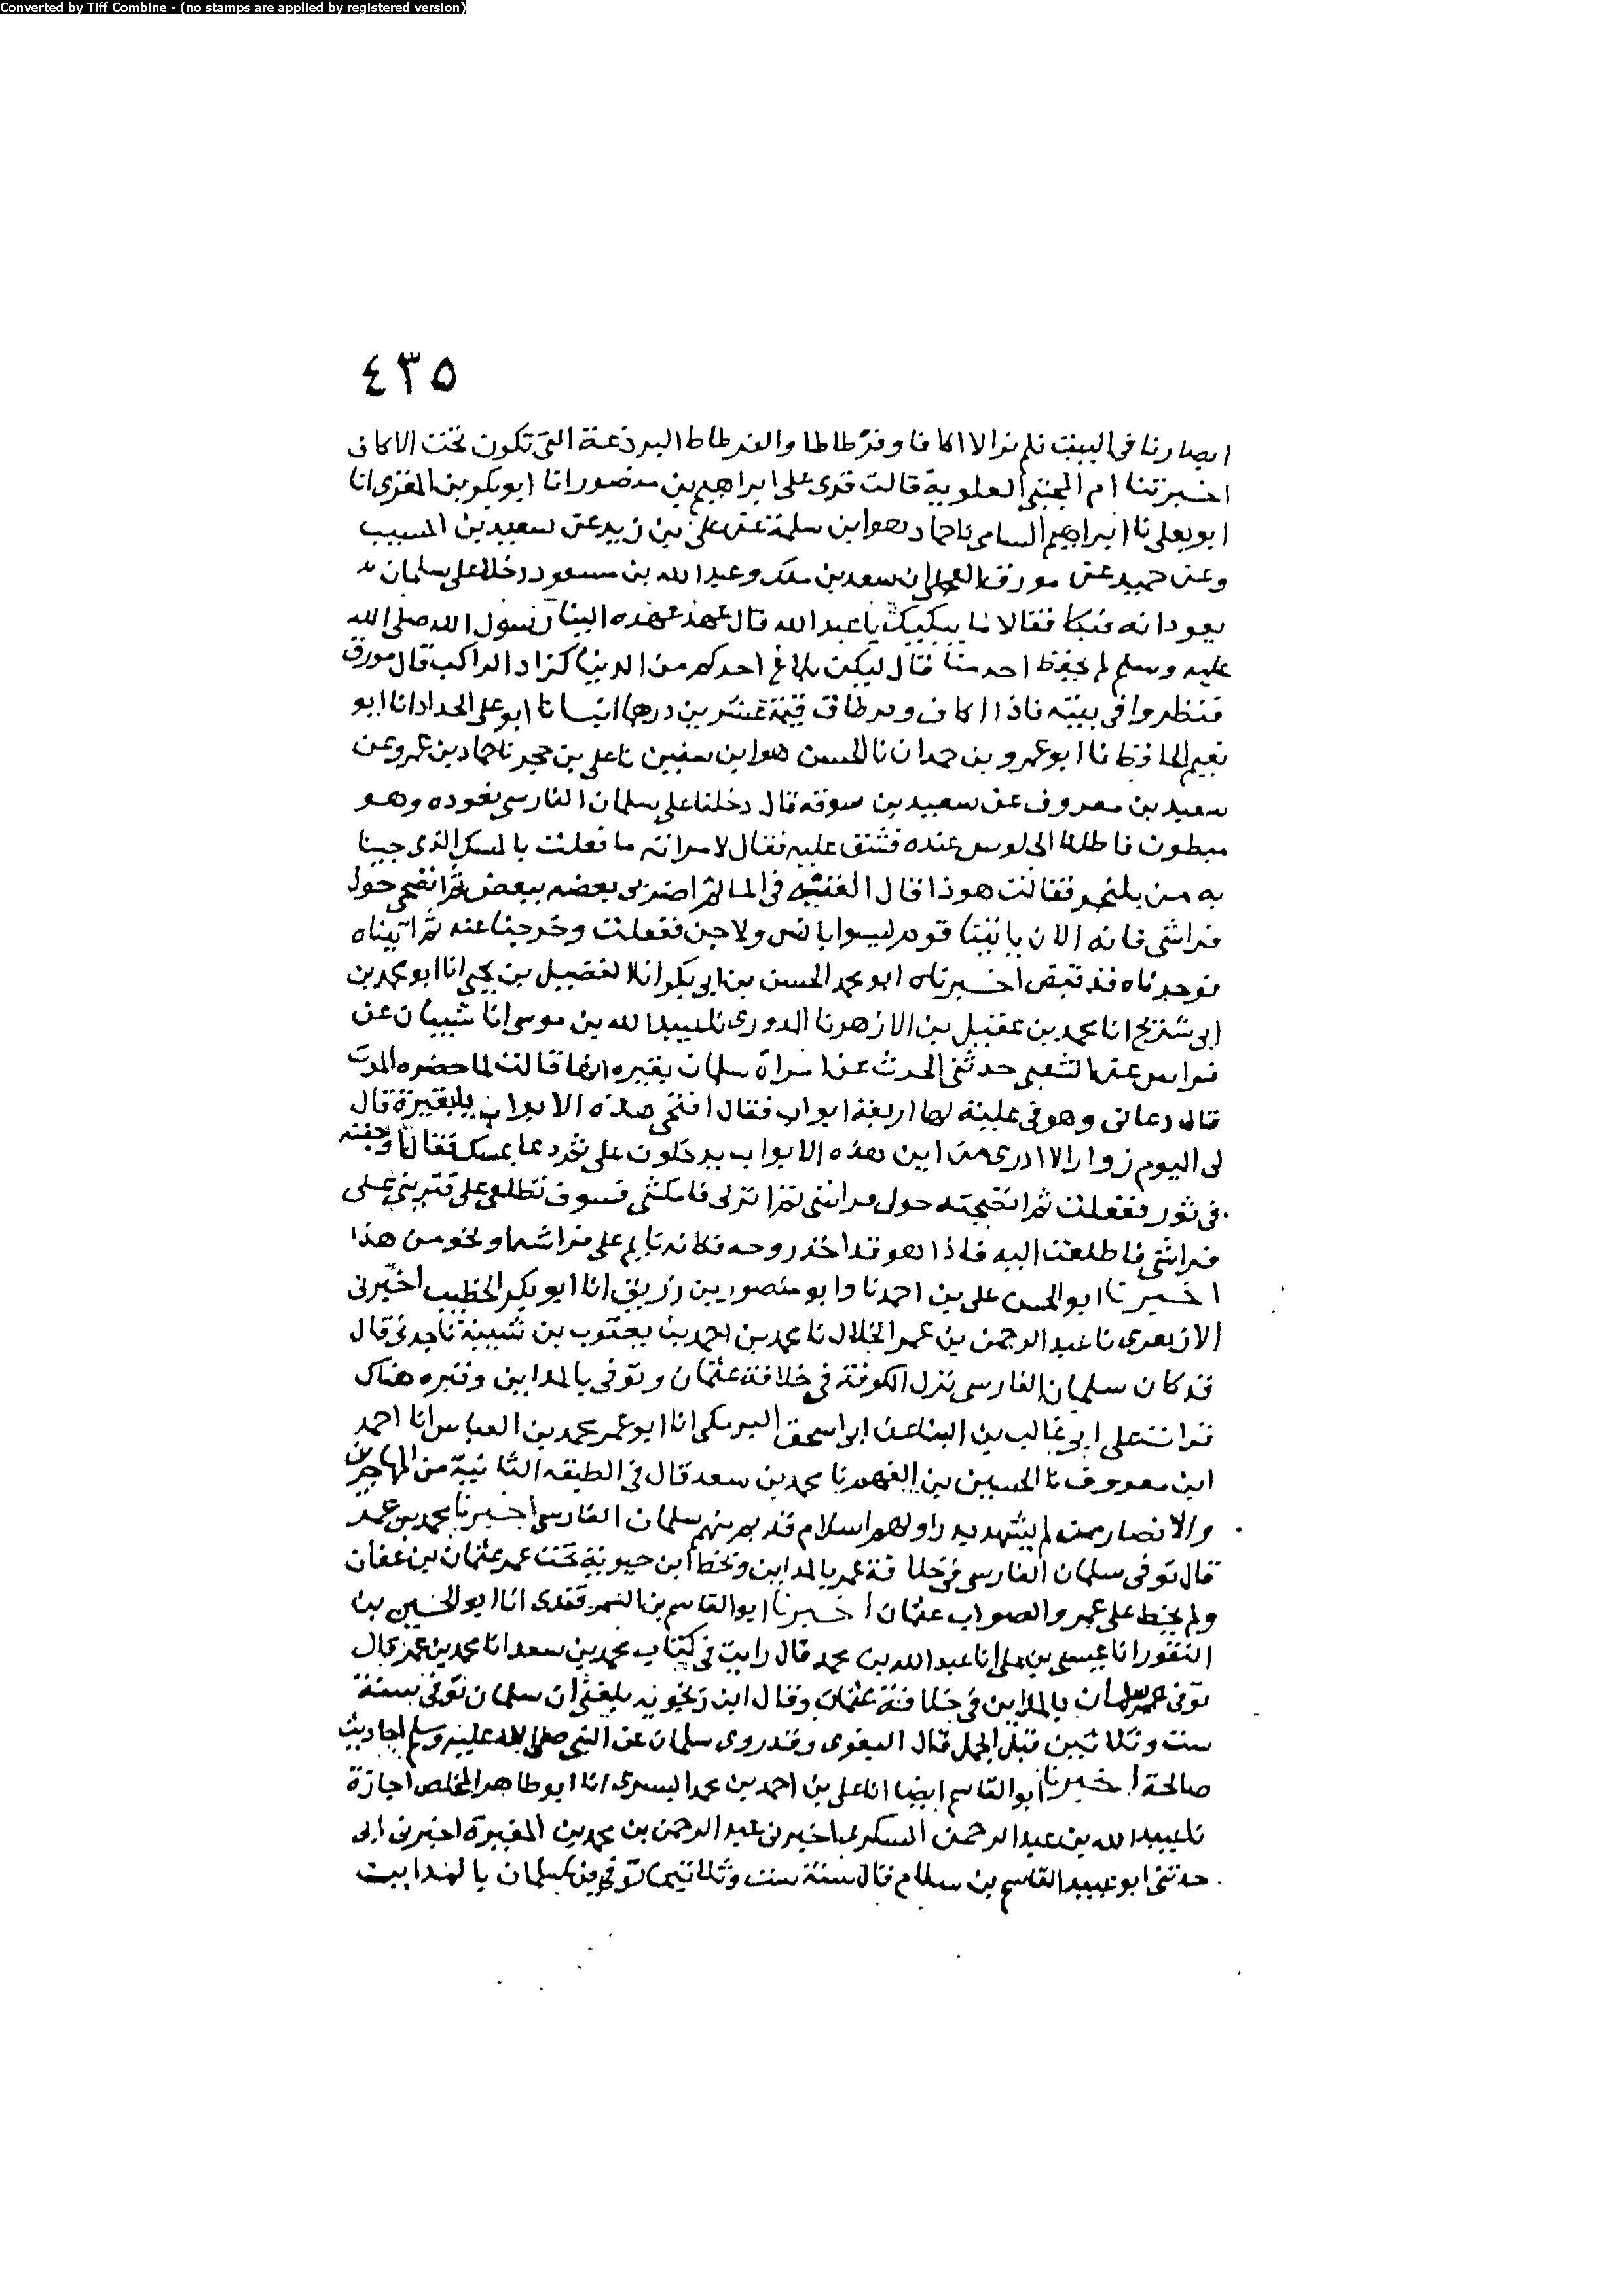 Converted by Tiff Combine - (no stamps are applied by registered version)
٤٣٥
ابصارنا فى البيت فلم نر الا اكافا وقرطاطا والقرطاط البرذعة التى تكون تحت الاكاف
اخبرتنا ام المجتبى العلوية قالت قرى على ابراهيم بن منصور انا ابو بكر بن المقرى انا
ابو يعلى نا ابراهيم السامى نا حماد هو ابن سلمة عن على بن زيد عن سعيد بن المسيب
وعن حميد عن مورق العجلى ان سعد بن ملك وعبد الله بن مسعود دخلا على سلمان
يعودانه فبكا فقالا ما يبكيك يا عبد الله قال عهد عهده الينا رسول الله صلى الله
عليه وسلم لم يحفظ احد منا قال ليكن بلاغ احدكم من الدنيا كزاد الراكب قال مورق
فنظروا فى بيته فاذا اكاف وقرطاق قيمة عشرين درهما انبانا ابو على الحداد انا ابو
نعيم الحافظ نا ابو عمرو بن حمدان نا الحسن هو ابن سفين نا على بن حجر نا حماد بن عمرو عن
سعيد بن معروف عن سعيد بن سوقة قال دخلنا على سلمان الفارسى نعوده وهو
مبطون فاطلنا الجلوس عنده فشق عليه فقال لامراته ما فعلت بالمسك الذى جينا
به من بلنجر فقالت هو ذا قال القيه فى الما ثم اضربى بعضه ببعض ثم انضحى حول
فراشى فانه الان ياتينا قوم ليسوا بانس ولا جن ففعلت وخرجنا عنه ثم اتيناه
فوجدناه قد قبض اخبرناه ابو محمد الحسن بن ابى بكر انا الفضيل بن يحيى انا ابو محمد بن
ابى شريح انا محمد بن عقيل بن الازهر نا الدورى نا عبيد الله بن موسى انا شيبان عن
فراس عن الشعبى حدثنى الحرث عن امراة سلمان بقيرة انها قالت لما حضره الموت
قال دعانى وهو فى علية لها اربعة ابواب فقال افتحى هذه الابواب يا بقيرة قال
لى اليوم زوارا لا ادرى من اين هذه الابواب يدخلون على ثم دعا بمسك فقال
فى تور ففعلت ثم انضحيه حول فراشى ثم انزلى فامكثى فسوف تطلعى على على
فراشى فاطلعت اليه فاذا هو قد اخذ روحه فكانه نايم على فراشه او نحو من هذا
اخبرنا ابو الحسن على بن احمد نا وابو منصور بن زريق انا ابو بكر الخطيب اخبرنى
الازهرى نا عبد الرحمن بن عمر الخلال نا محمد بن احمد بن يعقوب بن شيبة نا جدى قال
قد كان سلمان الفارسى نزل الكوفة فى خلافة عثمان وتوفى بالمداين وقبره هناك
قرات على ابى غالب بن البنا عن ابى اسحق البرمكى انا ابو عمر محمد بن العباس انا احمد
ابن معروف نا الحسين بن الفهم نا محمد بن سعد قال فى الطبقه الثانية من المهاجرين
والانصار ممن لم يشهد بدرا ولهم اسلام قديم منهم سلمان الفارسى اخبرنا محمد بن عمر
قال توفى سلمان الفارسى فى خلافة عمر بالمداين وبخط ابن حيوية تحت عمر عثمان بن عفان
ولم يخط على عمر والصواب عثمان اخبرنا ابو القاسم بن السمرقندى انا ابو الحسين بن
النقور انا عيسى بن على انا عبد الله بن محمد قال رايت فى كتاب محمد بن سعد انا محمد بن عمر قال
توفى سلمان بالمداين فى خلافة عثمان وقال ابن زنجويه بلغنى ان سلمان توفى سنة
ست وثلاثين قبل الجمل قال البغوى وقد روى سلمان عن النبى صلى الله عليه وسلم احاديث
صالحة اخبرنا ابو القاسم ايضا انا على بن احمد بن محمد البسرى انا ابو طاهر المخلص اجازة
نا عبيد الله بن عبد الرحمن السكرى اخبرنى عبد الرحمن بن محمد بن المغيرة اخبرنى ابى
حدثنى ابو عبيد القاسم بن سلام قال سنة ست وثلاثين توفى فيها سلمان بالمداين